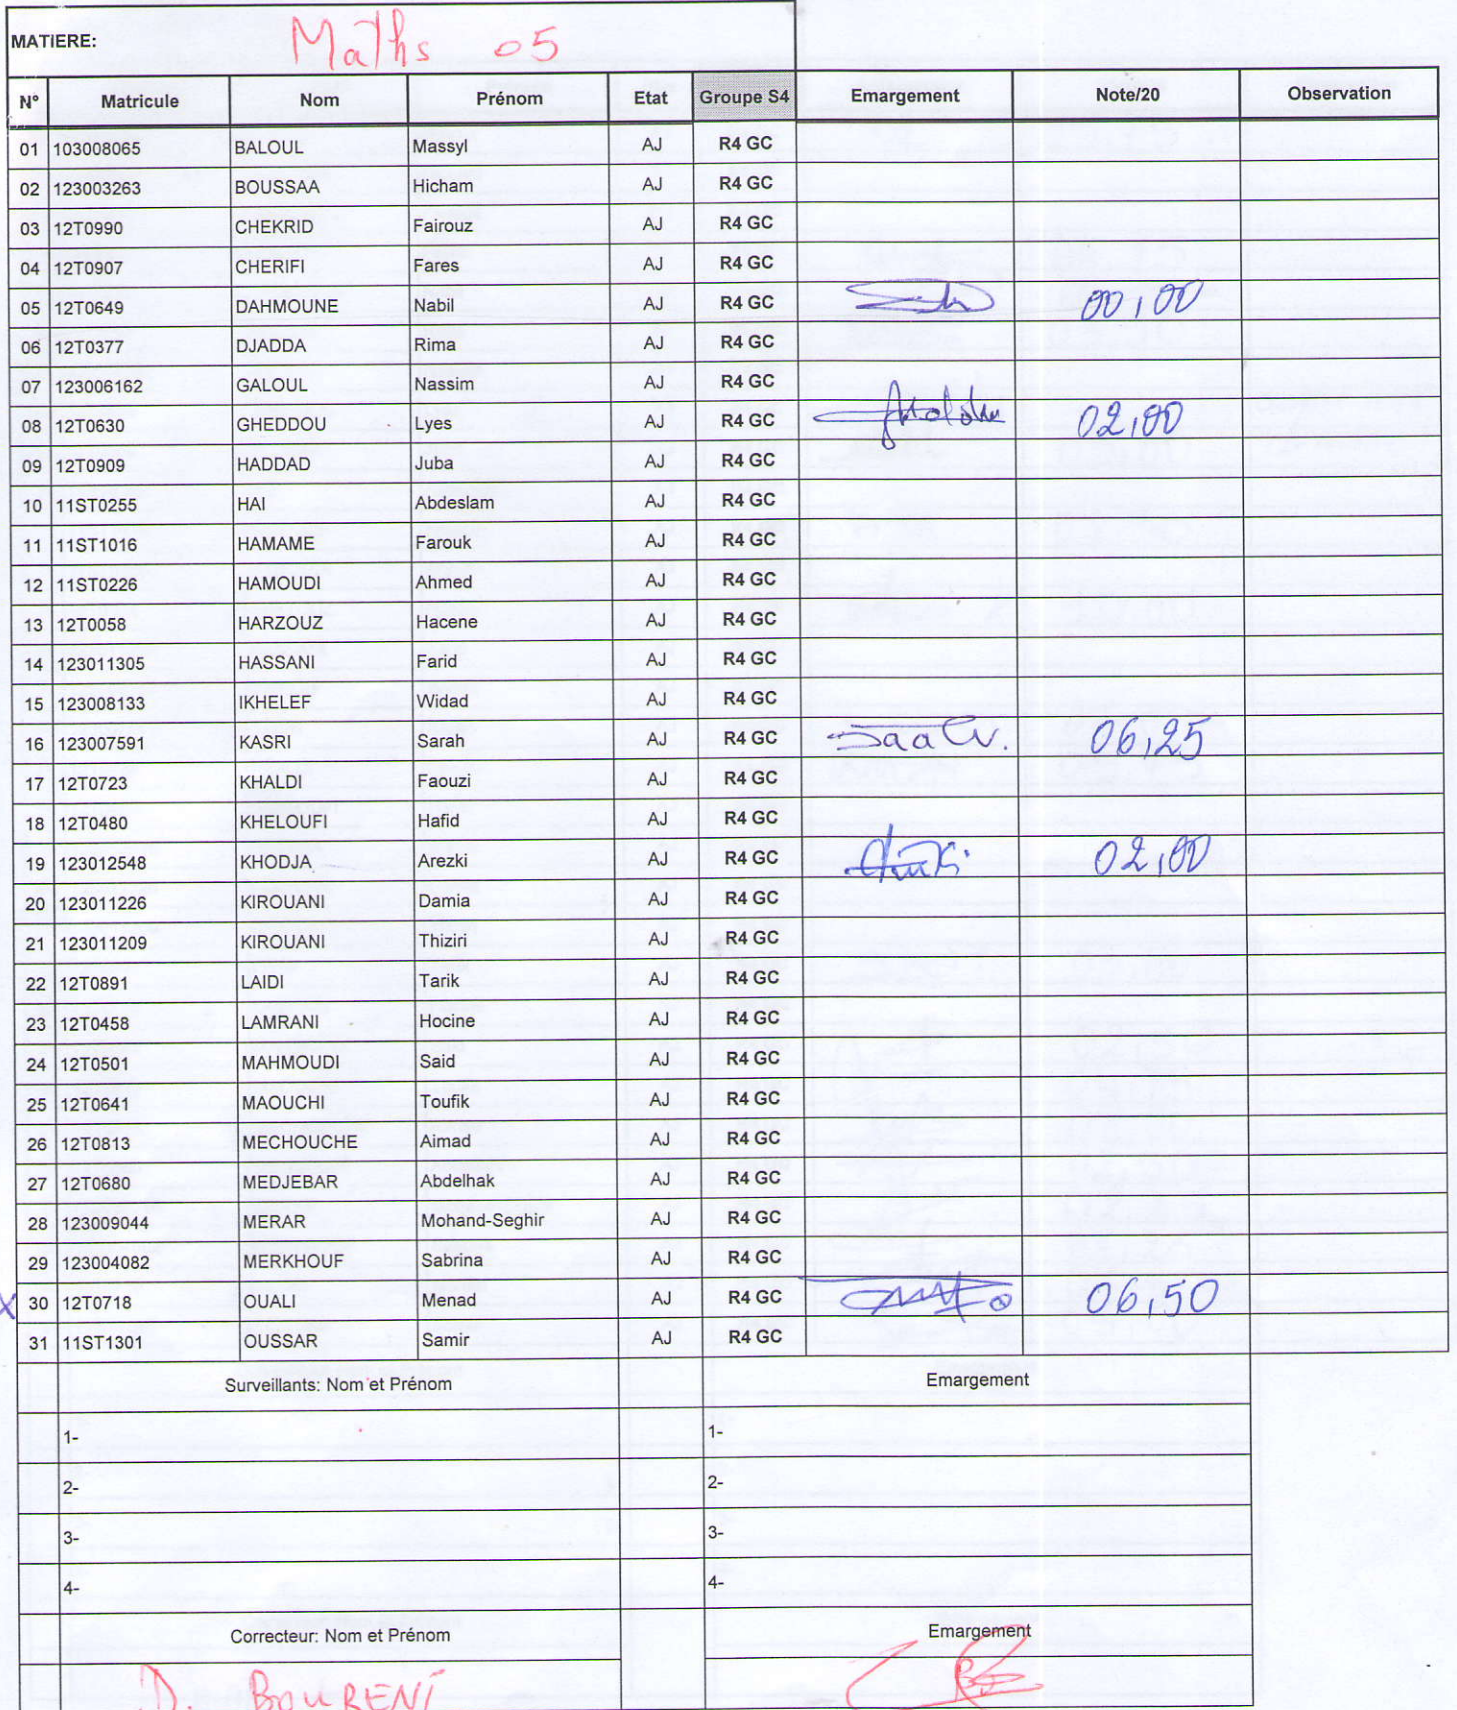 MATIERE: Maths 05
N° Matricule Nom Prénom Etat Groupe S4 Emargement Note/20 Observation
01 103008065 BALOUL Massyl AJ R4 GC
02 123003263 BOUSSAA Hicham AJ R4 GC
03 12T0990 CHEKRID Fairouz AJ R4 GC
04 12T0907 CHERIFI Fares AJ R4 GC
05 12T0649 DAHMOUNE Nabil AJ R4 GC 00,00
06 12T0377 DJADDA Rima AJ R4 GC
07 123006162 GALOUL Nassim AJ R4 GC
08 12T0630 GHEDDOU Lyes AJ R4 GC 02,00
09 12T0909 HADDAD Juba AJ R4 GC
10 11ST0255 HAI Abdeslam AJ R4 GC
11 11ST1016 HAMAME Farouk AJ R4 GC
12 11ST0226 HAMOUDI Ahmed AJ R4 GC
13 12T0058 HARZOUZ Hacene AJ R4 GC
14 123011305 HASSANI Farid AJ R4 GC
15 123008133 IKHELEF Widad AJ R4 GC
16 123007591 KASRI Sarah AJ R4 GC 06,25
17 12T0723 KHALDI Faouzi AJ R4 GC
18 12T0480 KHELOUFI Hafid AJ R4 GC
19 123012548 KHODJA Arezki AJ R4 GC 02,00
20 123011226 KIROUANI Damia AJ R4 GC
21 123011209 KIROUANI Thiziri AJ R4 GC
22 12T0891 LAIDI Tarik AJ R4 GC
23 12T0458 LAMRANI Hocine AJ R4 GC
24 12T0501 MAHMOUDI Said AJ R4 GC
25 12T0641 MAOUCHI Toufik AJ R4 GC
26 12T0813 MECHOUCHE Aimad AJ R4 GC
27 12T0680 MEDJEBAR Abdelhak AJ R4 GC
28 123009044 MERAR Mohand-Seghir AJ R4 GC
29 123004082 MERKHOUF Sabrina AJ R4 GC
x 30 12T0718 OUALI Menad AJ R4 GC 06,50
31 11ST1301 OUSSAR Samir AJ R4 GC
Surveillants: Nom et Prénom Emargement
1- 1-
2- 2-
3- 3-
4- 4-
Correcteur: Nom et Prénom Emargement
D. BOURENI